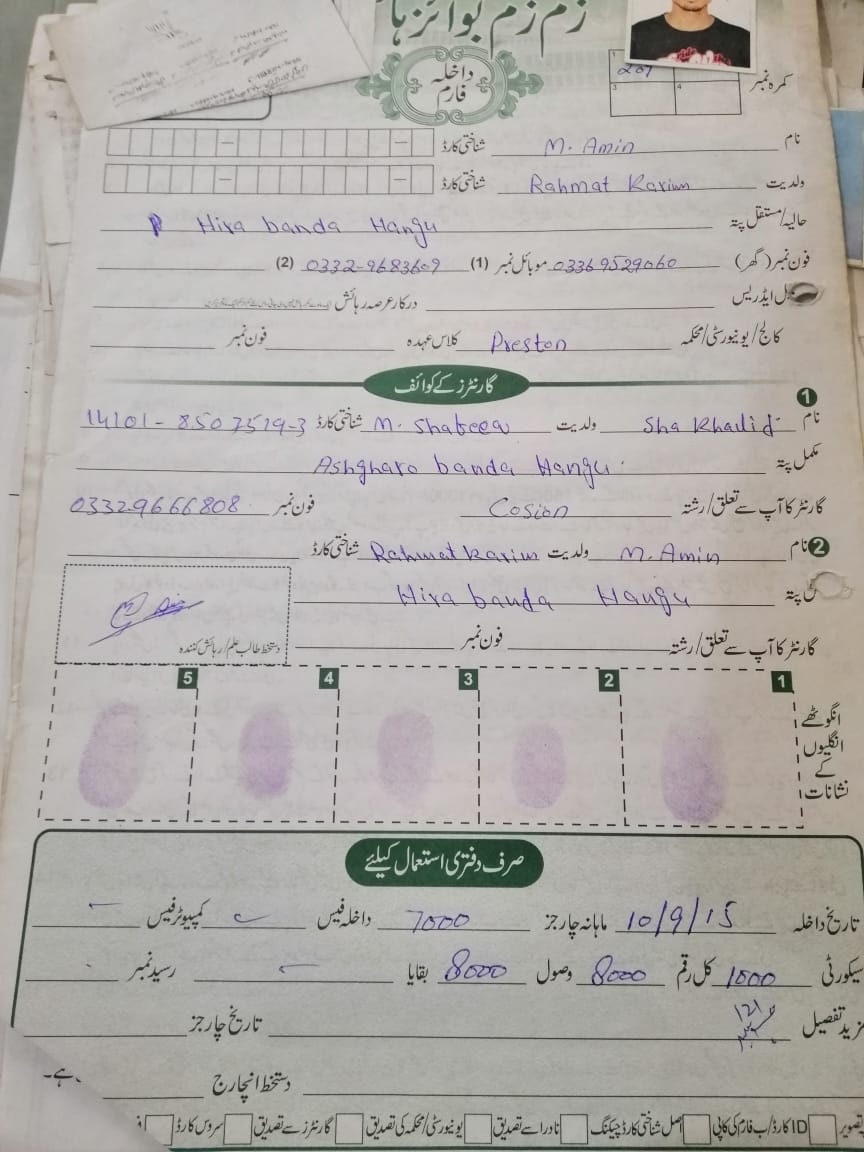 زم زم بوائز ہا
داخلہ فارم
کمرہ نمبر 1 201 3 4
نام M. Amin شناختی کارڈ
ولدیت Rahmat Karim شناختی کارڈ
حالیہ/مستقل پتہ Hira banda Hangu
فون نمبر (گھر) 03369529060 موبائل نمبر (1) 0332-9683609 (2)
ل ایڈریس درکار عرصہ رہائش
کالج/یونیورسٹی/محکمہ Preston کلاس عہدہ فون نمبر
گارنٹرز کے کوائف
1 نام Sha Khalid ولدیت M. Shabeea شناختی کارڈ 14101-8507519-3
مکمل پتہ Ashgharo banda Hangu
گارنٹر کا آپ سے تعلق/رشتہ Cosion فون نمبر 0332-9666808
2 نام M. Amin ولدیت Rahmat Karim شناختی کارڈ
پتہ Hira banda Hangu
گارنٹر کا آپ سے تعلق/رشتہ فون نمبر
دستخط طالب علم/رہائش کنندہ
1 2 3 4 5
انگوٹھے
انگلیوں
کے
نشانات
صرف دفتری استعمال کیلئے
تاریخ داخلہ 10/9/15 ماہانہ چارجز 7000 داخلہ فیس کمپیوٹر فیس
سیکورٹی 1000 کل رقم 8000 وصول 8000 بقایا رسید نمبر
مزید تفصیل
تاریخ چارجز
دستخط انچارج ہے۔
تصویر ID کارڈ/ب فارم کی کاپی اصل شناختی کارڈ چیکنگ نادرا سے تصدیق یونیورسٹی/محکمہ کی تصدیق گارنٹرز سے تصدیق سروس کارڈ